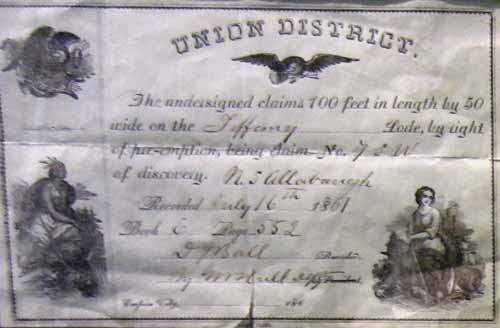 UNION DISTRICT.
The undersigned claims 100 feet in length by 50
wide on the Tiffany Lode, by right
of pre-emption, being claim No. 7 E W
of discovery. N. S. Allabaugh
Recorded July 16th 1861
Book E Page 352
Ball
By
186